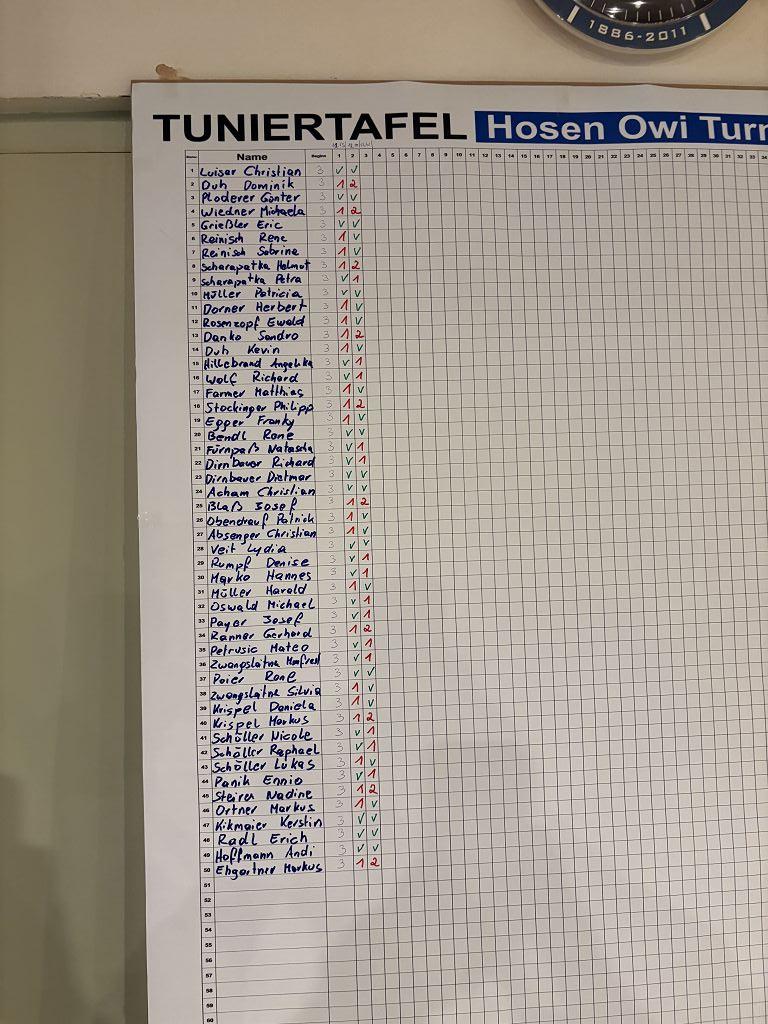 1886-2011
TUNIERTAFEL Hosen Owi Turn
Name Beginn 1 2 3 4 5 6 7 8 9 10 11 12 13 14 15 16 17 18 19 20 21 22 23 24 25 26 27 28 29 30 31 32 33 34
1 Luiser Christian 3 v v
2 Duh Dominik 3 1 2
3 Ploderer Günter 3 v v
4 Wiedner Michaela 3 1 2
5 Grießler Eric 3 v v
6 Reinisch Rene 3 1 v
7 Reinisch Sabrina 3 1 v
8 Scharapatka Helmut 3 1 2
9 Scharapatka Petra 3 v 1
10 Müller Patricia 3 v v
11 Dorner Herbert 3 1 v
12 Rosenzopf Ewald 3 1 v
13 Danko Sandro 3 1 2
14 Duh Kevin 3 1 v
15 Hillebrand Angelika 3 v 1
16 Wolf Richard 3 v 1
17 Farmer Matthias 3 1 v
18 Stockinger Philipp 3 1 2
19 Egger Franky 3 1 v
20 Bendl Rene 3 v v
21 Fürnpaß Natascha 3 v 1
22 Dirnbauer Richard 3 v 1
23 Dirnbauer Dietmar 3 v v
24 Acham Christian 3 v v
25 Blaß Josef 3 1 2
26 Obendrauf Patrick 3 1 v
27 Absenger Christian 3 1 v
28 Veit Lydia 3 v v
29 Rumpf Denise 3 v 1
30 Marko Hannes 3 v 1
31 Müller Harald 3 1 v
32 Oswald Michael 3 v 1
33 Payer Josef 3 v 1
34 Ranner Gerhard 3 1 2
35 Petrusic Mateo 3 v 1
36 Zwangsleitna Manfred 3 v 1
37 Poier Rene 3 v v
38 Zwangsleitna Silvia 3 1 v
39 Krispel Daniela 3 1 v
40 Krispel Markus 3 1 2
41 Schöller Nicole 3 v 1
42 Schöller Raphael 3 v 1
43 Schöller Lukas 3 1 v
44 Panik Ennio 3 v 1
45 Steirer Nadine 3 1 2
46 Ortner Markus 3 1 v
47 Kikmaier Kerstin 3 v v
48 Radl Erich 3 v v
49 Hoffmann Andi 3 v v
50 Ehgartner Markus 3 1 2
51
52
53
54
55
56
57
58
59
60